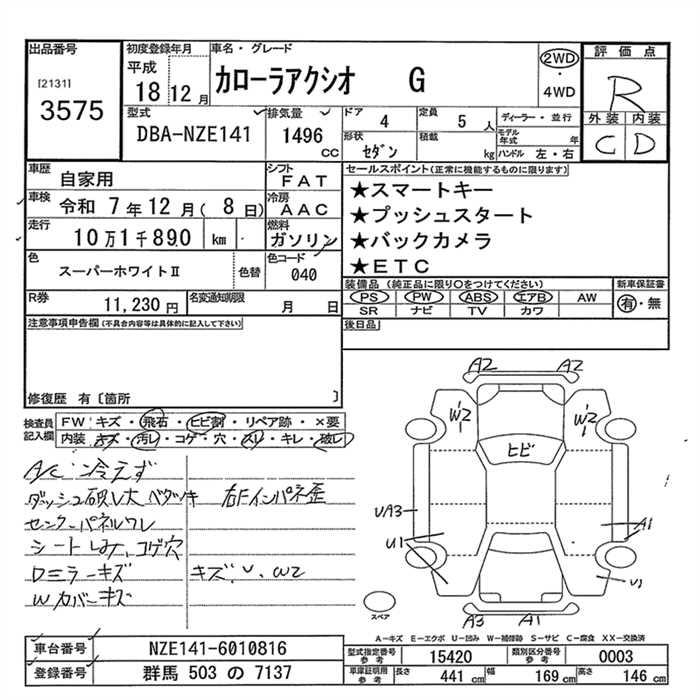 出品番号
[2131]
3575
初度登録年月
平成
18 12 月
車名・グレード
カローラアクシオ G
2WD
・
4WD
評価点
R
外装 内装
C D
型式
DBA-NZE141
排気量
1496
CC
ドア
4
定員
5 人
形状
セダン
積載
kg
ディーラー・並行
モデル年式 年
ハンドル 左・右
車歴
自家用
シフト
FAT
車検
令和 7年12月( 8日)
冷房
AAC
走行
10万1千890 km
燃料
ガソリン
色
スーパーホワイトⅡ
色替
色コード
040
R券
11,230円
名変通知期限
月 日
セールスポイント(正常に機能するものに限ります)
★スマートキー
★プッシュスタート
★バックカメラ
★ETC
装備品 (純正品に限り○をつけてください)
PS PW ABS エアB AW
SR ナビ TV カワ
新車保証書
有・無
後日品
注意事項申告欄(不具合内容等は具体的に記入して下さい)
修復歴 有〔箇所 〕
検査員記入欄
FW キズ・飛石・ヒビ割・リペア跡・×要
内装 キズ・汚レ・コゲ・穴・スレ・キレ・破レ
A/C 冷えず
ダッシュ破レ大 ベタツキ 右Fインパネ歪
センターパネルワレ
シートしみ、コゲ穴
Dミラーキズ キズ、U、W2
Wカバーキズ
A2 A2
W2 W2
ヒビ
UA3
A1
U1
U1
A3 A1
スペア
A-キズ E-エクボ U-凹み W-補修跡 S-サビ C-腐食 XX-交換済
車台番号
NZE141-6010816
登録番号
群馬 503 の 7137
型式指定番号
参考
15420
類別区分番号
参考
0003
車庫証明用
参考
長さ 441 cm
幅 169 cm
高さ 146 cm